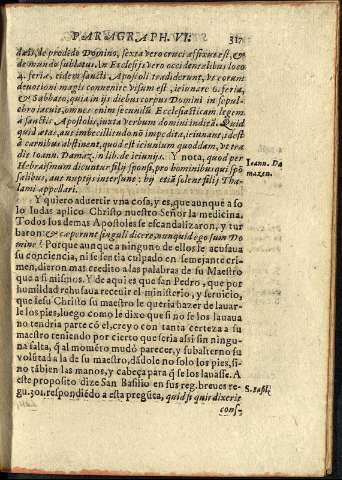 PARAGRAPH. VI: 317
dæD, de prodedo Domino, sexta vero cruci affixus est, &
de mundo sublatus. In Ecclesijs vero occidentalibus loco
4. feriæ, eidem sancti Apostoli tradiderunt, vt coram
deuotioni magis conuenire visum est, ieiunare 6. feria,
& Sabbato, quia in ijs diebus corpus Domini in sepul-
chro iacuit, omnes enim secundũ Ecclesiasticam legem
à sanctis Apostolis, iuxta verbum domini inditã. Quid
quid ætas, aut imbecillitudo nõ impedita, ieiunant, idest
à carnibus abstinent, quod est ieiunium quoddam, vt tra
dit Ioann. Damaz. in lib. de ieiunijs. Y nota, quod per
Hebraismum dicuntur filij sponsi, pro hominibus qui spõ
salibus, aut nuptijs intersunt: hy etiã solent filij Tha-
lami appellari.
Ioann. Da
mazen.
Y quiero aduertir vna cosa, y es, que aunque a so
lo Iudas aplico Christo nuestro Señor la medicina.
Todos los demas Apostoles se escandalizaron, y tur
baron: & cæperunt singuli dicere, nunquid ego sum Do
mine? Porque aunque a ninguno de ellos le acusaua
su conciencia, ni se sentia culpado en semejante cri-
men, dieron mas credito a las palabras de su Maestro
que a si mismos. Y de aqui es que san Pedro, que por
humildad rehusaua receuir el ministerio, y seruicio,
que Iesu Christo su maestro le queria hazer de lauar-
le los pies, luego como le dixo que si no se los lauaua
no tendria parte cõ el, creyo con tanta certeza a su
maestro teniendo por cierto que seria assi sin ningu-
na falta, q̃ al momẽto mudò parecer, y subalterno su
volũtad a la de su maestro, dãdole no solo los pies, si-
no tãbien las manos, y cabeça para q̃ se los lauasse. A
este proposito dize San Basilio en sus reg. breues re-
gu. 301. respondiẽdo a esta pregũta, quid si quis dixerit
S. Basil.
cons-